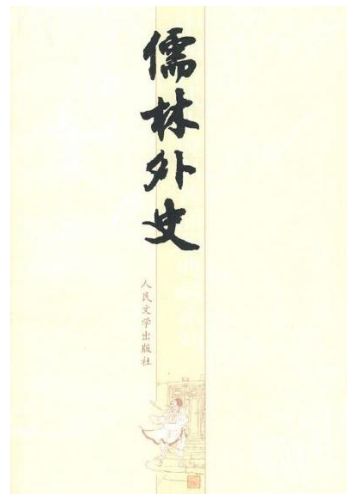 儒林外史
人民文学出版社